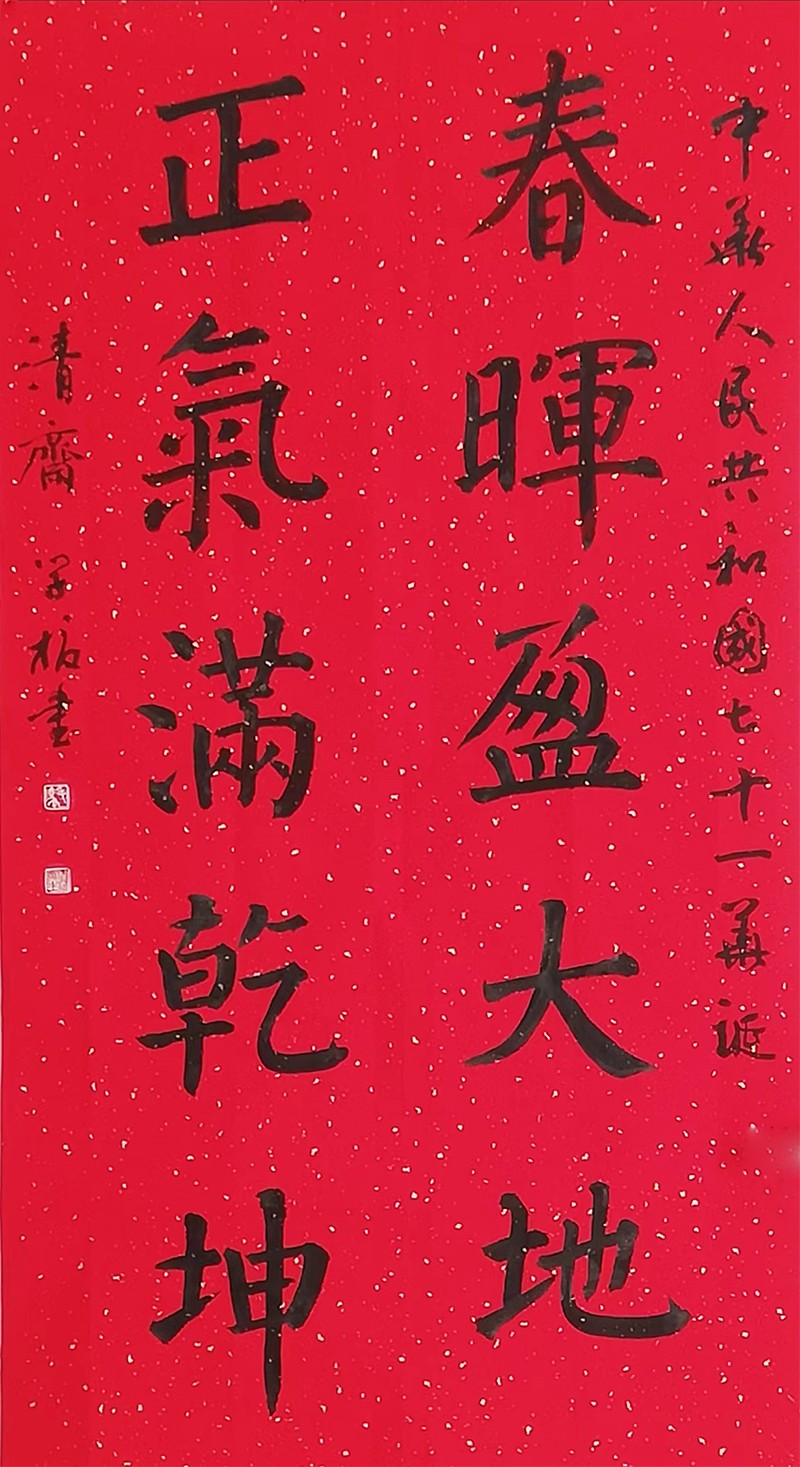 中華人民共和國七十一華誕
春暉盈大地
正氣滿乾坤
清齋 書